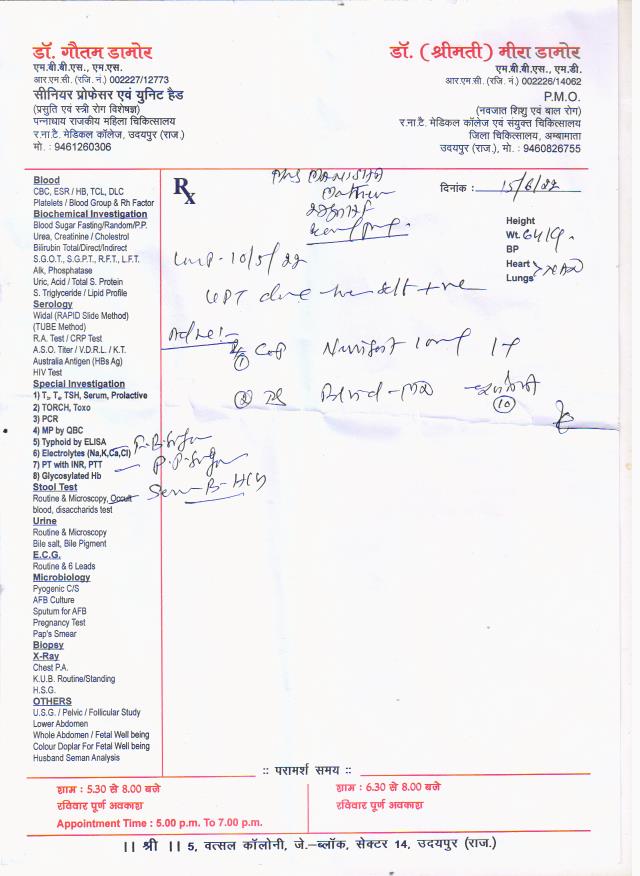 डॉ. गौतम डामोर
एम.बी.बी.एस., एम.एस.
आर.एम.सी. (रजि. नं.) 002227/12773
सीनियर प्रोफेसर एवं युनिट हैड
(प्रसुति एवं स्त्री रोग विशेषज्ञ)
पन्नाधाय राजकीय महिला चिकित्सालय
र.ना.टै. मेडिकल कॉलेज, उदयपुर (राज.)
मो. : 9461260306
डॉ. (श्रीमती) मीरा डामोर
एम.बी.बी.एस., एम.डी.
आर.एम.सी. (रजि. नं.) 002226/14062
P.M.O.
(नवजात शिशु एवं बाल रोग)
र.ना.टै. मेडिकल कॉलेज एवं संयुक्त चिकित्सालय
जिला चिकित्सालय, अम्बामाता
उदयपुर (राज.), मो. : 9460826755
Blood
CBC, ESR / HB, TCL, DLC
Platelets / Blood Group & Rh Factor
Biochemical Investigation
Blood Sugar Fasting/Random/P.P.
Urea, Creatinine / Cholestrol
Bilirubin Total/Direct/Indirect
S.G.O.T., S.G.P.T., R.F.T., L.F.T.
Alk, Phosphatase
Uric, Acid / Total S. Protein
S. Triglyceride / Lipid Profile
Serology
Widal (RAPID Slide Method)
(TUBE Method)
R.A. Test / CRP Test
A.S.O. Titer / V.D.R.L. / K.T.
Australia Antigen (HBs Ag)
HIV Test
Special Investigation
1) T₃, T₄, TSH, Serum, Prolactive
2) TORCH, Toxo
3) PCR
4) MP by QBC
5) Typhoid by ELISA
6) Electrolytes (Na,K,Ca,Cl)
7) PT with INR, PTT
8) Glycosylated Hb
Stool Test
Routine & Microscopy, Occult
blood, disaccharids test
Urine
Routine & Microscopy
Bile salt, Bile Pigment
E.C.G.
Routine & 6 Leads
Microbiology
Pyogenic C/S
AFB Culture
Sputum for AFB
Pregnancy Test
Pap's Smear
Biopsy
X-Ray
Chest P.A.
K.U.B. Routine/Standing
H.S.G.
OTHERS
U.S.G. / Pelvic / Follicular Study
Lower Abdomen
Whole Abdomen / Fetal Well being
Colour Doplar For Fetal Well being
Husband Seman Analysis
Rx
Mrs MANISHA
दिनांक : 15/6/22
Height
Wt. 64
BP
Heart
Lungs
LMP - 10/5/22
UPT done +ve
Advise:-
① Cap
②
⑩
P.P. Sugar
B-HCG
:: परामर्श समय ::
शाम : 5.30 से 8.00 बजे
रविवार पूर्ण अवकाश
Appointment Time : 5.00 p.m. To 7.00 p.m.
शाम : 6.30 से 8.00 बजे
रविवार पूर्ण अवकाश
।। श्री ।। 5, वत्सल कॉलोनी, जे.–ब्लॉक, सेक्टर 14, उदयपुर (राज.)